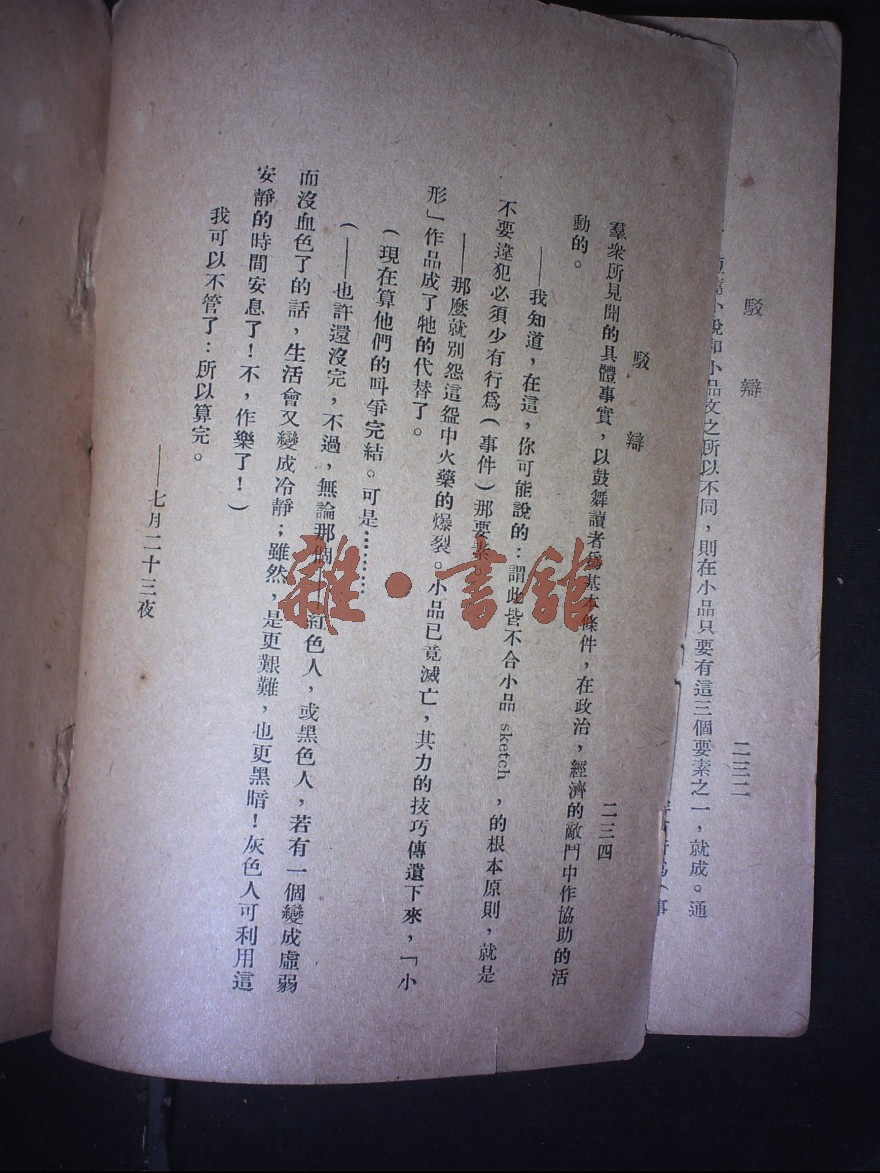 駁辯
二三二
短篇小說和小品文之所以不同，則在小品只要有這三個要素之一，就成。通
駁辯
二三四
羣衆所見聞的具體事實，以鼓舞讀者爲基本條件，在政治，經濟的敵鬥中作協助的活
動的。
——我知道，在這，你可能說的：謂此皆不合小品 sketch ，的根本原則，就是
不要違犯必須少有行爲（事件）那要素。
——那麼就別怨這盌中火藥的爆裂。小品已竟滅亡，其力的技巧傳遺下來，「小
形」作品成了牠的代替了。
（現在算他們的叫爭完結。可是………
（——也許還沒完，不過，無論那個——紅色人，或黑色人，若有一個變成虛弱
而沒血色了的話，生活會又變成冷靜；雖然，是更艱難，也更黑暗！灰色人可利用這
安靜的時間安息了！不，作樂了！）
我可以不管了：所以算完。
——七月二十三夜
雜·書館